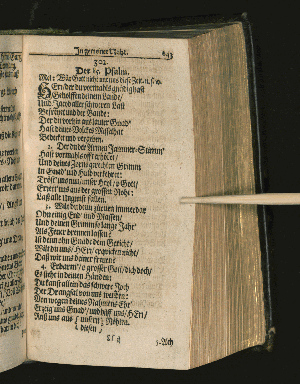 In gemeiner Noht.
302.
Der 85. Psalm.
Mel: Wär Gott nicht mit uns diese Zeit/
HErr/der du vormahls gnädig hast
Geholffen deinem Lande/
Und Jacob aller schweren Last
Befreyt und der Bande:
Der du vorhin aus lauter Gnad'
Hast deines Volckes Missethat
Bedeckt und vergeben.
2. Der du der Armen Jammer-Stimm'
Hast vormahls offt erhöret/
Und deines Zorns gerechten Grimm
In Gnad' und Huld verkehret:
Tröst' uns nun/unser Heyl/o Gott/
Errett' uns aus der grossen Noht:
Laß alle Ungunst fallen.
3. Wilt du denn zürnen immerdar
Ohn einig End' und Massen/
Und deinen Grimm so lange Jahr'
Als Feuer brennen lassen?
Ist denn ohn Gnade dein Gericht/
Wilt du uns/HErr/erquicken nicht/
Daß wir uns deiner freuen?
4. Erbarm' o grosser Gott/dich doch/
Es steht in deinen Händen;
Du kanst allein das schwere Joch
Der Drangsal von uns wenden:
Von wegen deines Nahmens Ehr'
Erzeig uns Gnad'/und hilff uns/HErr/
Aus diesen
5. Ach